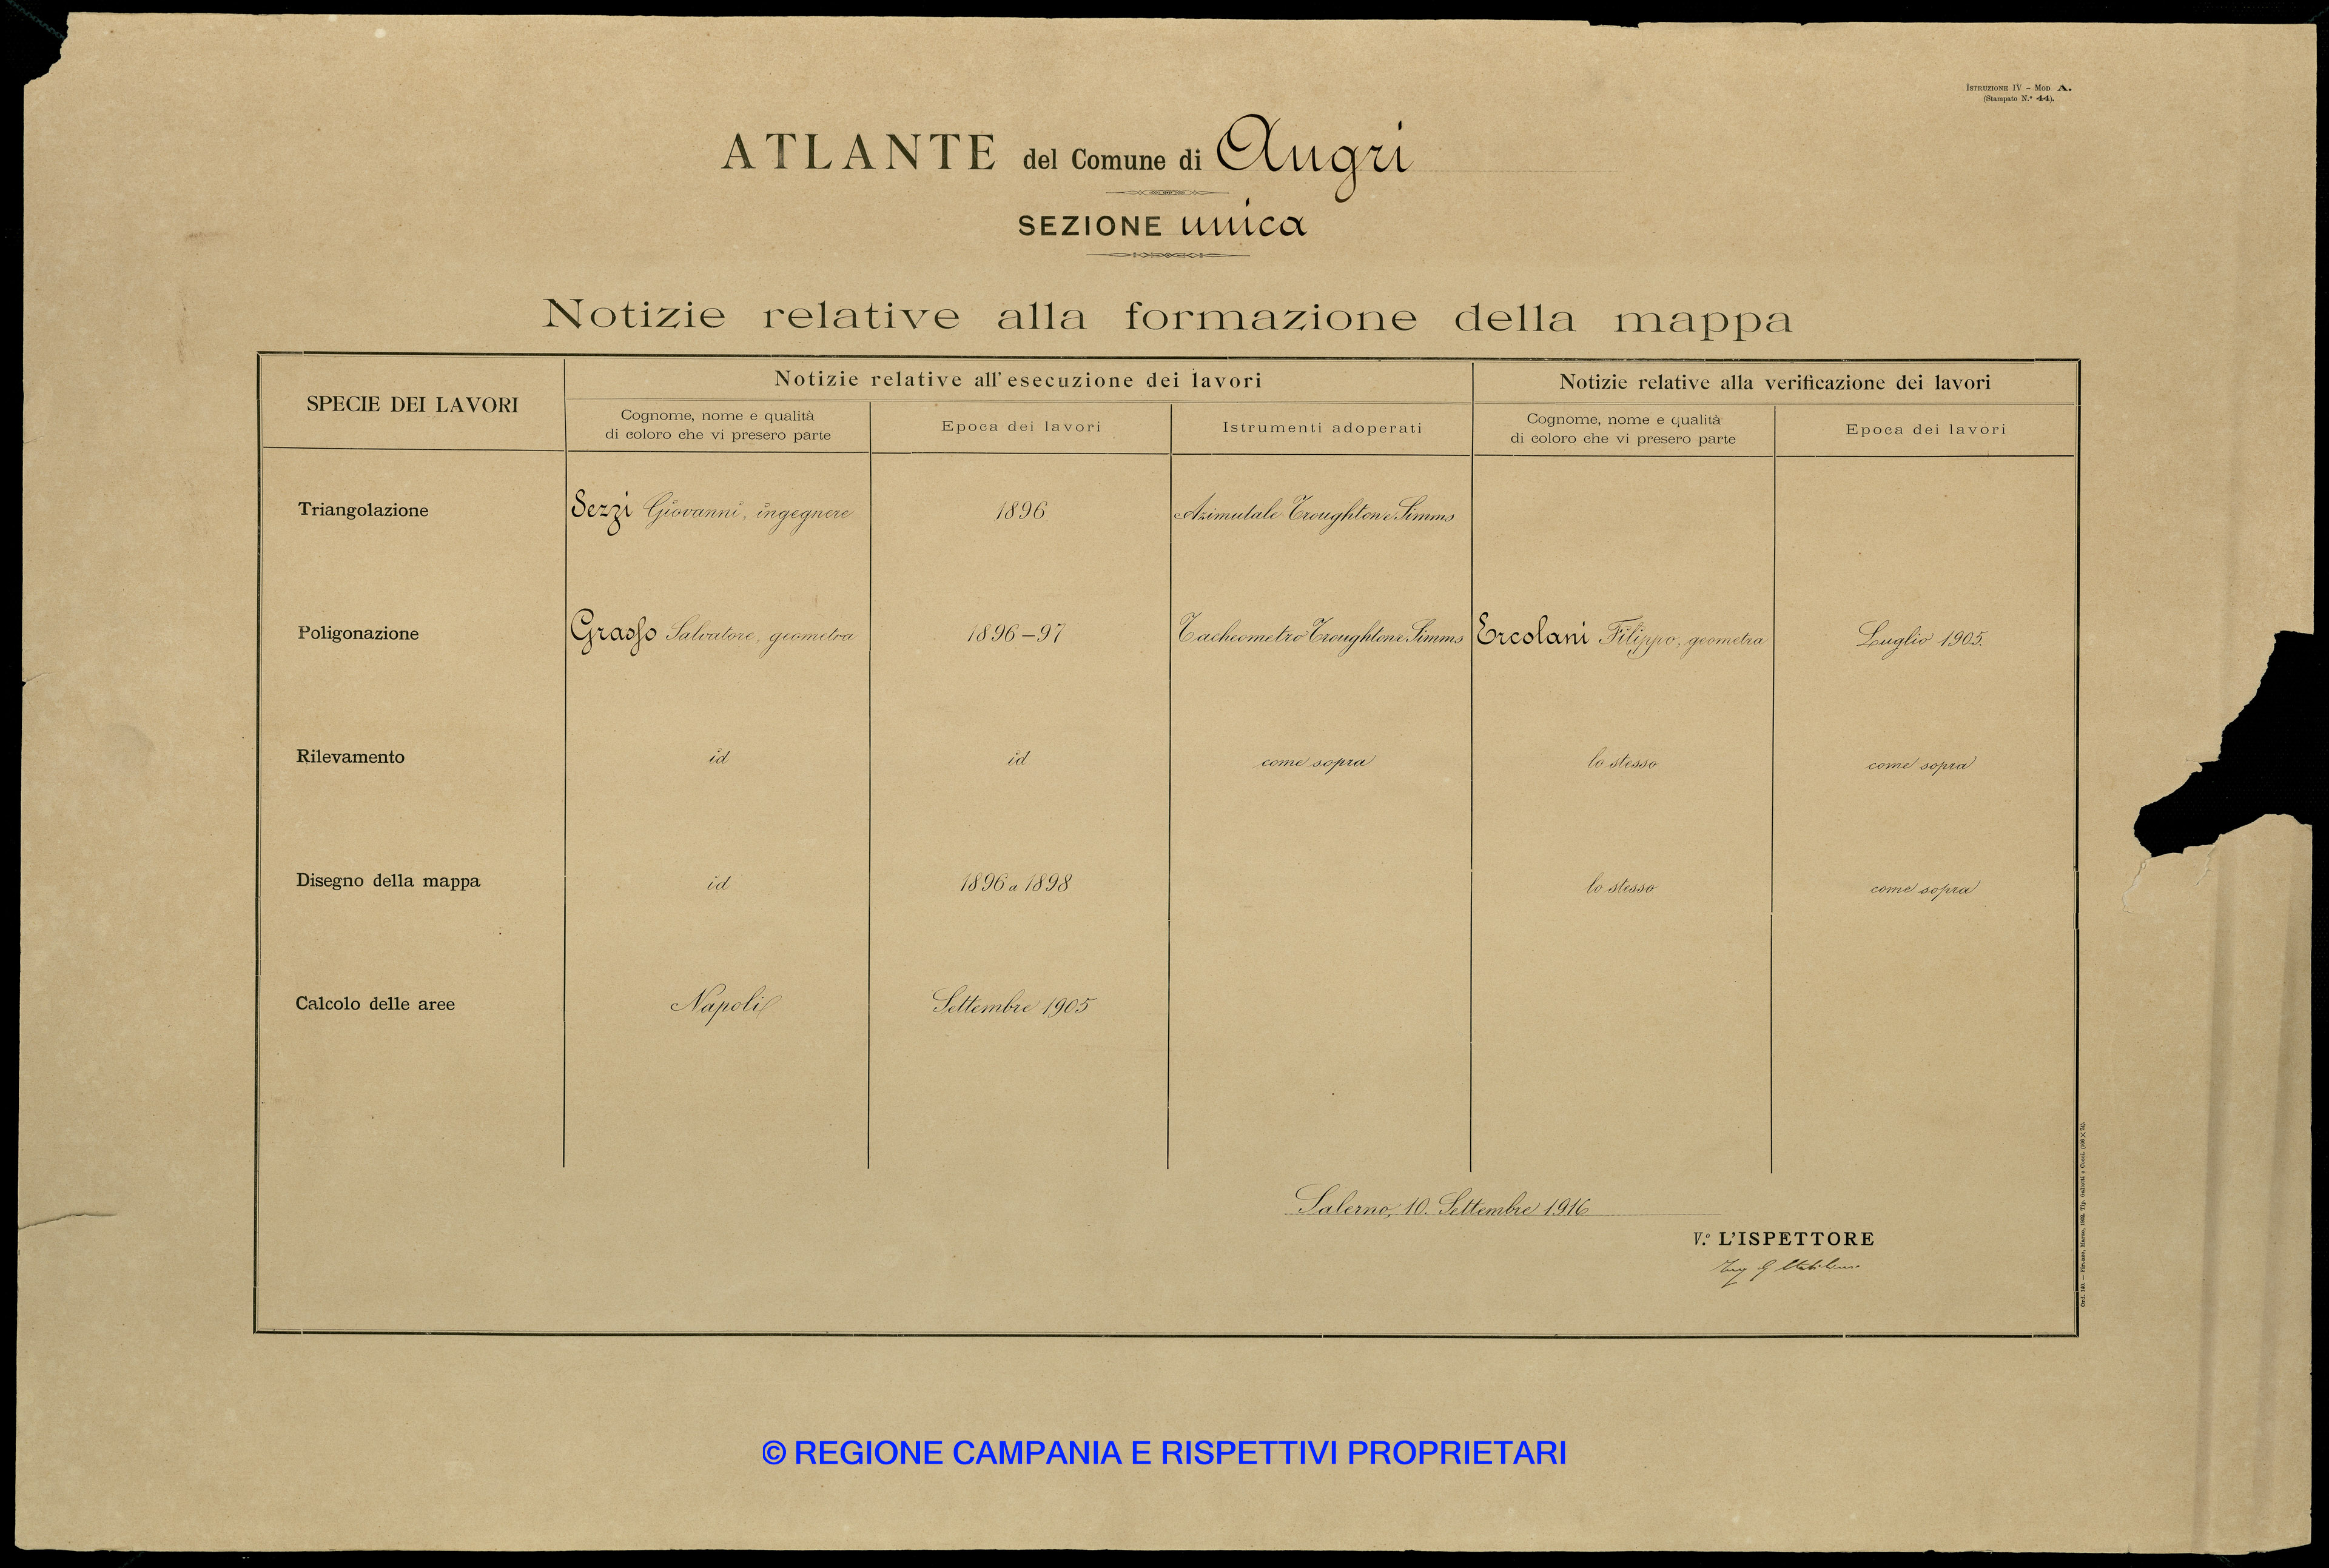 ISTRUZIONE IV - MOD. A.
(Stampato N.° 44).
ATLANTE del Comune di Angri
SEZIONE unica
Notizie relative alla formazione della mappa
SPECIE DEI LAVORI
Notizie relative all'esecuzione dei lavori
Notizie relative alla verificazione dei lavori
Cognome, nome e qualità
di coloro che vi presero parte
Epoca dei lavori
Istrumenti adoperati
Cognome, nome e qualità
di coloro che vi presero parte
Epoca dei lavori
Triangolazione Sezzi Giovanni, ingegnere 1896 Azimutale Troughton e Simms
Poligonazione Grasso Salvatore, geometra 1896-97 Tacheometro Troughton e Simms Ercolani Filippo, geometra Luglio 1905.
Rilevamento id id come sopra lo stesso come sopra
Disegno della mappa id 1896 a 1898 lo stesso come sopra
Calcolo delle aree Napoli Settembre 1905
Salerno, 10. Settembre 1916
V.° L'ISPETTORE
Ing G
Ord. — Firenze, Marzo, 1902. Tip. e Cocci.
© REGIONE CAMPANIA E RISPETTIVI PROPRIETARI